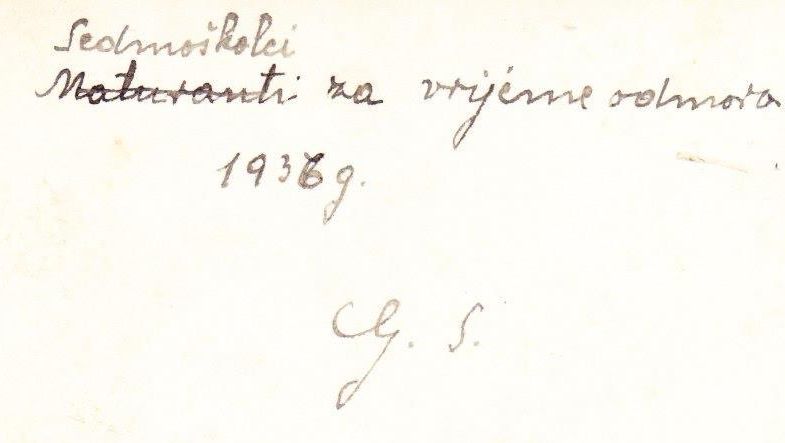 Sedmoškolci
Maturanti za vrijeme odmora
1936 g.
G. S.